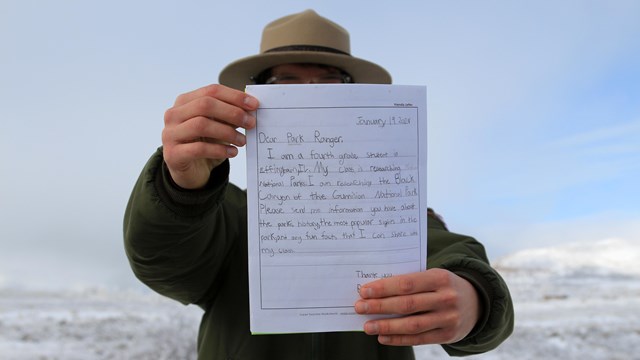 January 19, 2018
Dear Park Ranger,
I am a fourth grade student in
effingham, IL. My class is researching
National Parks. I am researching the Black
Canyon of the Gunnison National Park.
Please send me information you have about
the park, history, the most popular sights in the
park, and any fun facts that I can share with
my
Thank you